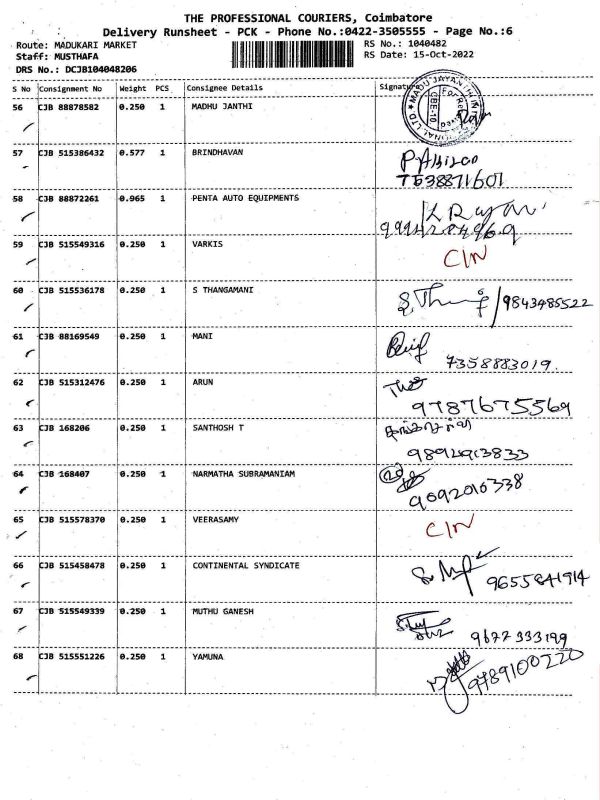 THE PROFESSIONAL COURIERS, Coimbatore
Delivery Runsheet - PCK - Phone No.:0422-3505555 - Page No.:6
Route: MADUKARI MARKET RS No.: 1040482
Staff: MUSTHAFA RS Date: 15-Oct-2022
DRS No.: DCJB104048206
S No Consignment No Weight PCS Consignee Details Signature
56 CJB 88878582 0.250 1 MADHU JANTHI
57 CJB 515386432 0.577 1 BRINDHAVAN
7538871601
58 CJB 88872261 0.965 1 PENTA AUTO EQUIPMENTS
59 CJB 515549316 0.250 1 VARKIS
C/N
60 CJB 515536178 0.250 1 S THANGAMANI
9843485522
61 CJB 88169549 0.250 1 MANI
7358883019.
62 CJB 515312476 0.250 1 ARUN
9787675569
63 CJB 168206 0.250 1 SANTHOSH T
64 CJB 168407 0.250 1 NARMATHA SUBRAMANIAM
9092010338
65 CJB 515578370 0.250 1 VEERASAMY
C/N
66 CJB 515458478 0.250 1 CONTINENTAL SYNDICATE
9655841914
67 CJB 515549339 0.250 1 MUTHU GANESH
9677333199
68 CJB 515551226 0.250 1 YAMUNA
9789100220